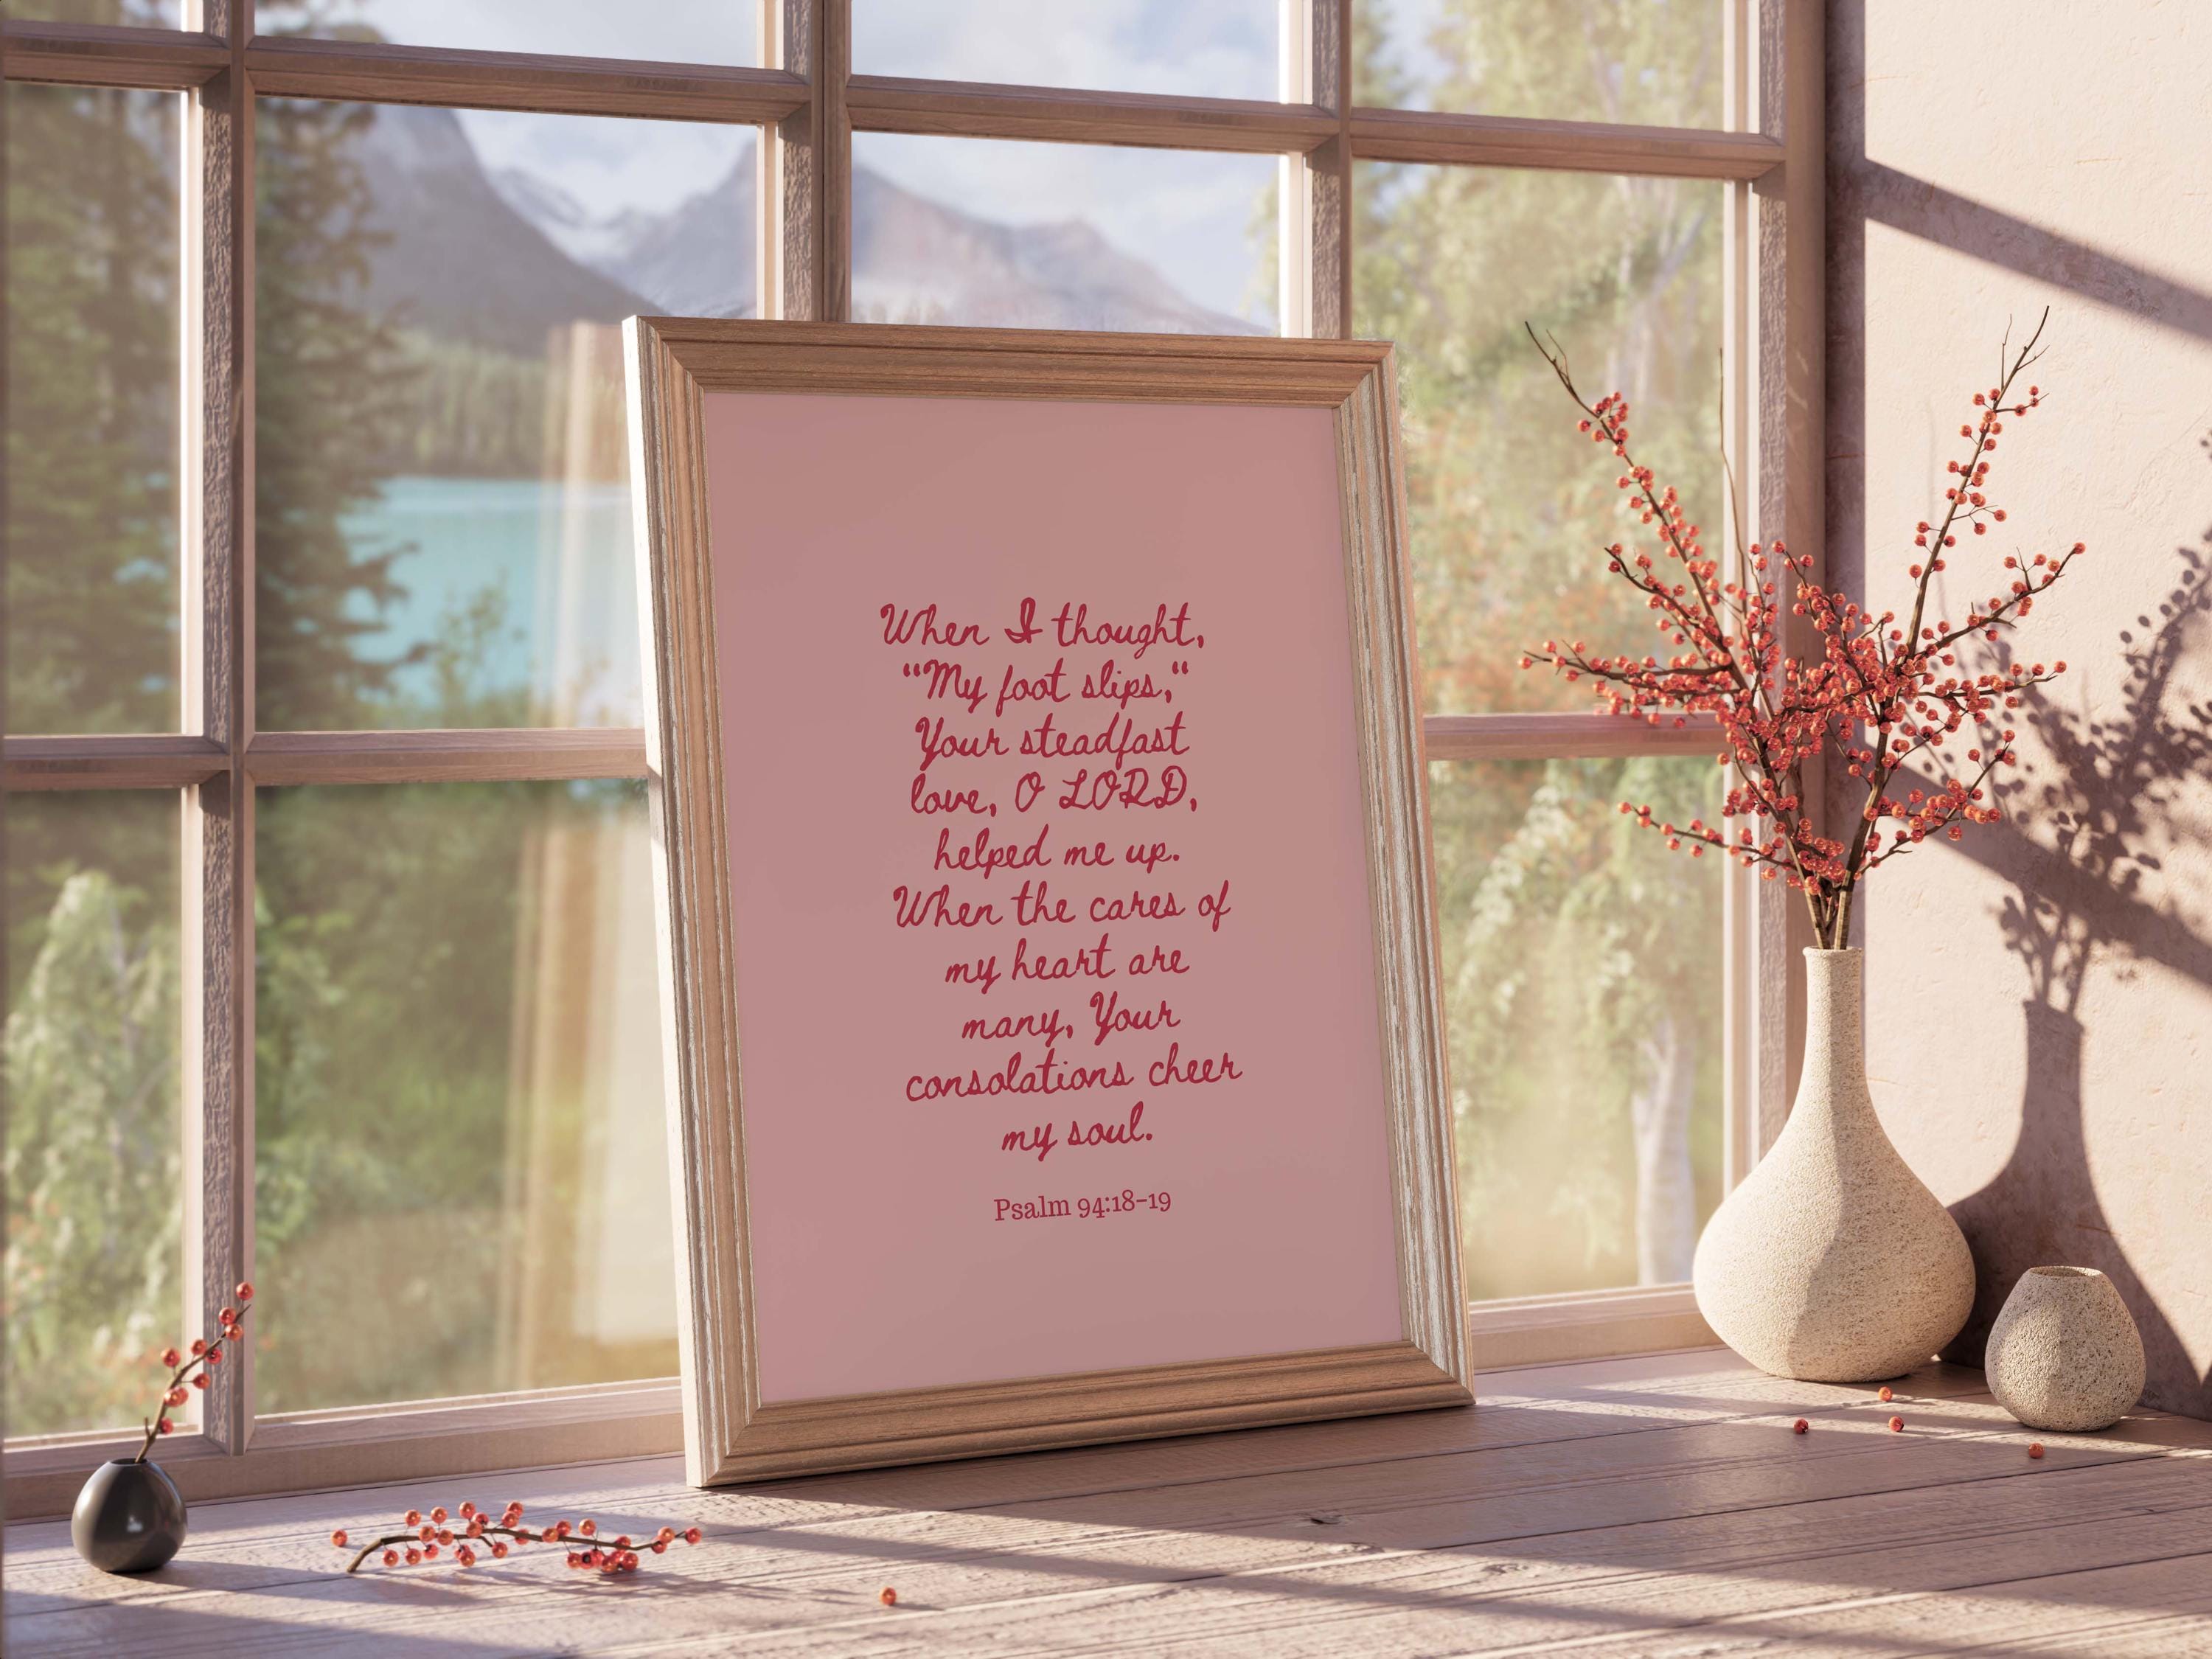 When I thought,
“My foot slips,“
Your steadfast
love, O LORD,
helped me up.
When the cares of
my heart are
many, Your
consolations cheer
my soul.
Psalm 94:18-19